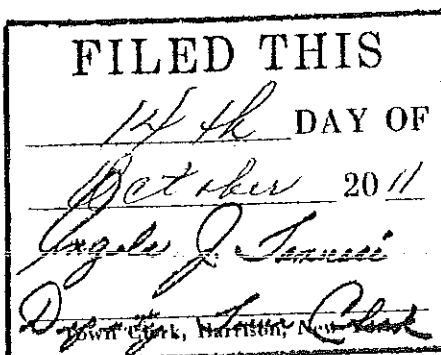 FILED THIS
14th DAY OF
October 2011
Angelo J.
Deputy Town Clerk
Town Clerk, Harrison, New